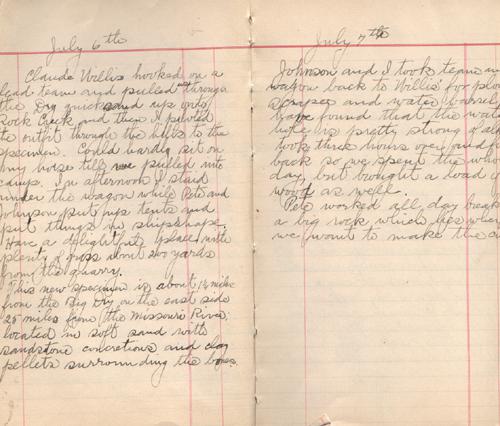 July 6th
Claude Willis hooked on a
lead team and pulled out through
the Dry quicksand up onto
Rock Creek and then I piloted
the outfit through the hills to the
specimen. Could hardly sit on
my horse till we pulled into
camp. In afternoon I staid
under the wagon while Pete and
Johnson put up tents and
put things in shipshape.
Have a delightful place with
plenty of grass about 200 yards
from the quarry.
This new specimen is about 1½ miles
from the Big Dry on the east side
25 miles from the Missouri River;
located in soft sand with
sandstone concretions and clay
pellets surrounding the bones.
July 7th
Johnson and I took team
wagon back to Willis' for
scraper and water
have found that the
is pretty strong
took three hours over and
back so we spent the
day, but brought a load
wood as well.
Pete worked all day
a big rock which lies
we want to make the